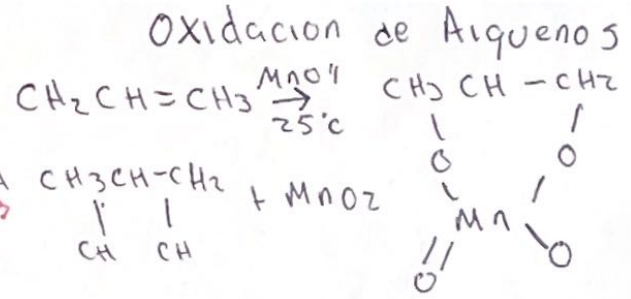 Oxidacion de Alquenos
CH2CH=CH3 MnO4 → 25°C CH3 CH - CH2
O O
Mn
O O
CH3CH-CH2 + MnO2
CH CH